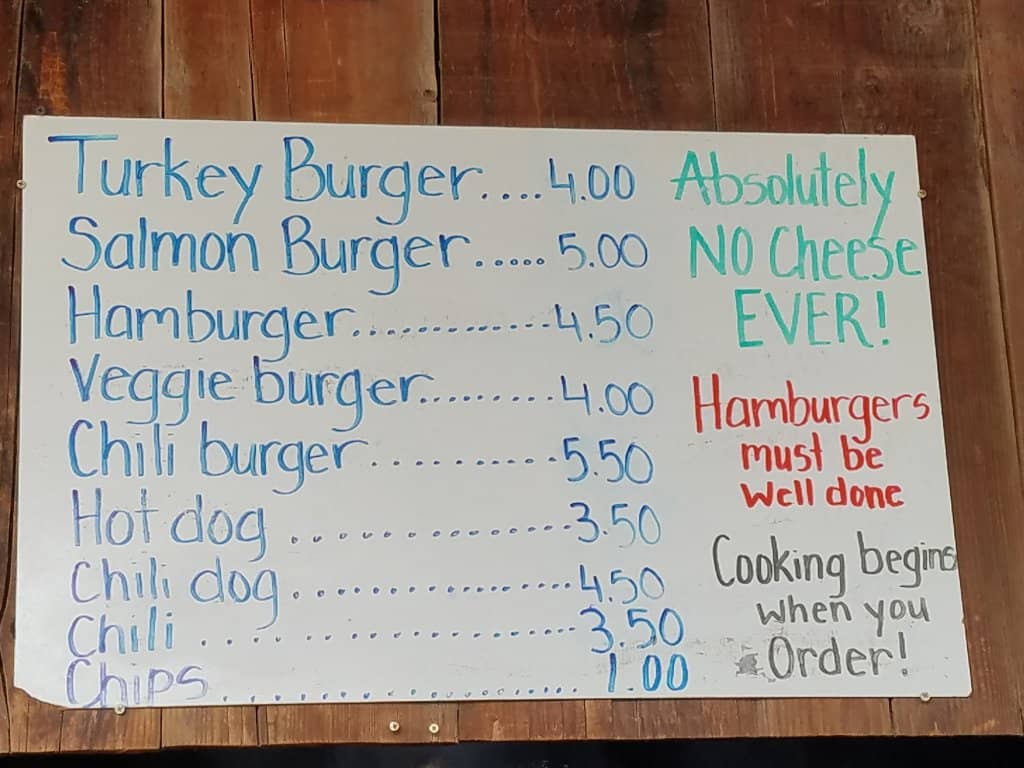 Turkey Burger....4.00
Salmon Burger..... 5.00
Hamburger.............4.50
Veggie burger.........4.00
Chili burger..........5.50
Hot dog ..............3.50
Chili dog...............4.50
Chili ..................3.50
Chips ..................... 1.00
Absolutely
NO Cheese
EVER!
Hamburgers
must be
well done
Cooking begins
when you
Order!